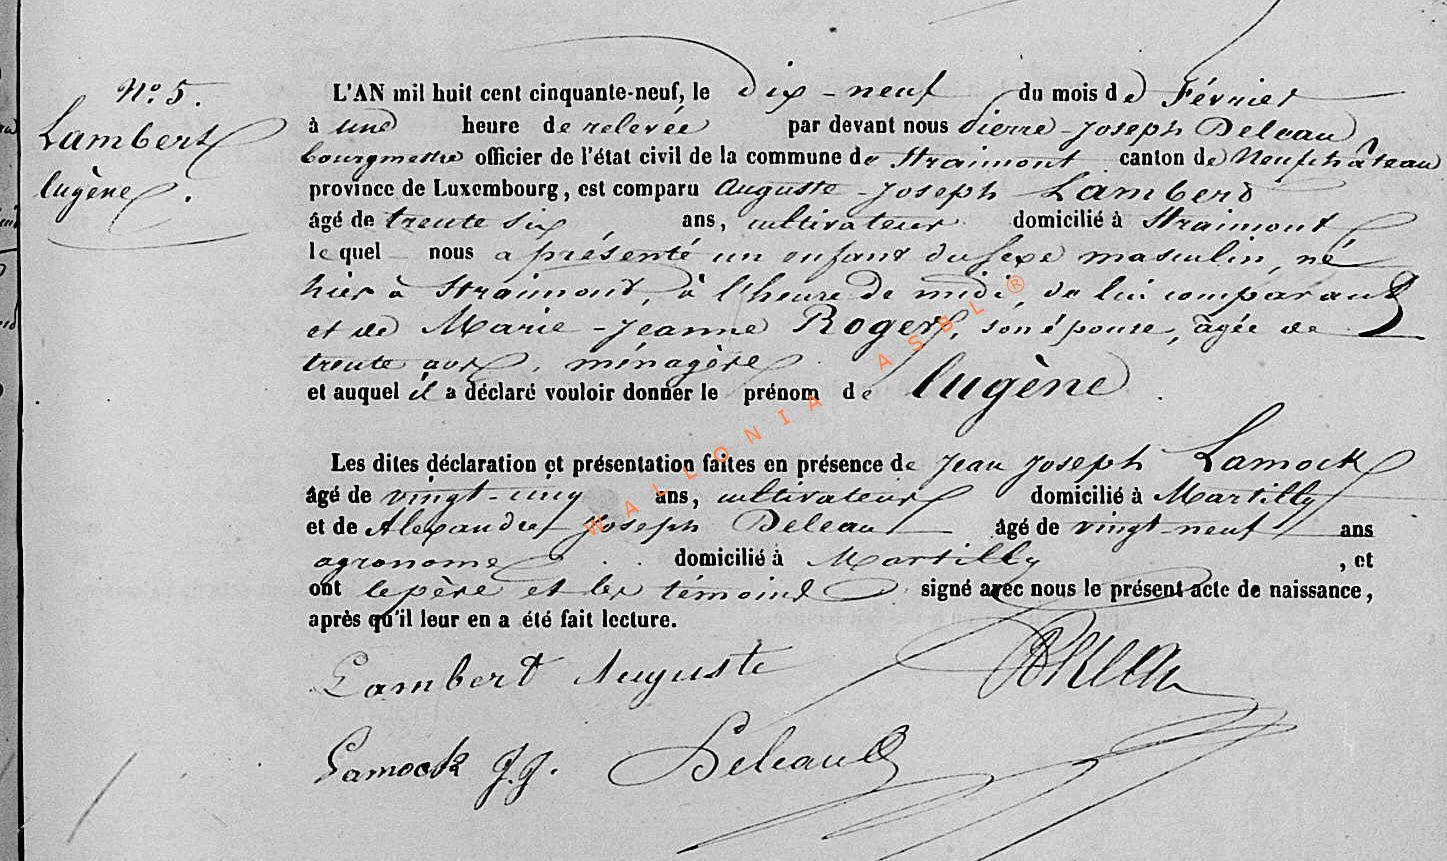 N° 5.
Lambert
Eugène.
L'AN mil huit cent cinquante-neuf, le dix-neuf du mois de Février
à une heure de relevée par devant nous Pierre-Joseph Deleau
bourgmestre officier de l'état civil de la commune de Straimont canton de Neufchâteau
province de Luxembourg, est comparu Auguste-Joseph Lambert
âgé de trente six ans, cultivateur domicilié à Straimont
lequel nous a présenté un enfant du sexe masculin, né
hier à Straimont, à l'heure de midi, de lui comparant
et de Marie-Jeanne Roger, son épouse, âgée de
trente ans, ménagère
et auquel il a déclaré vouloir donner le prénom de Eugène.
Les dites déclaration et présentation faites en présence de Jean Joseph Lamock
âgé de vingt-cinq ans, cultivateur domicilié à Martilly
et de Alexandre Joseph Deleau âgé de vingt-neuf ans
agronome domicilié à Martilly, et
ont le père et les témoins signé avec nous le présent acte de naissance,
après qu'il leur en a été fait lecture.
Lambert Auguste
Lamock J.J. Deleau
WALLONIA ASBL ®